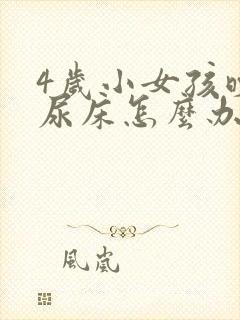 4歲小女孩晚
尿床怎麼办
風嵐